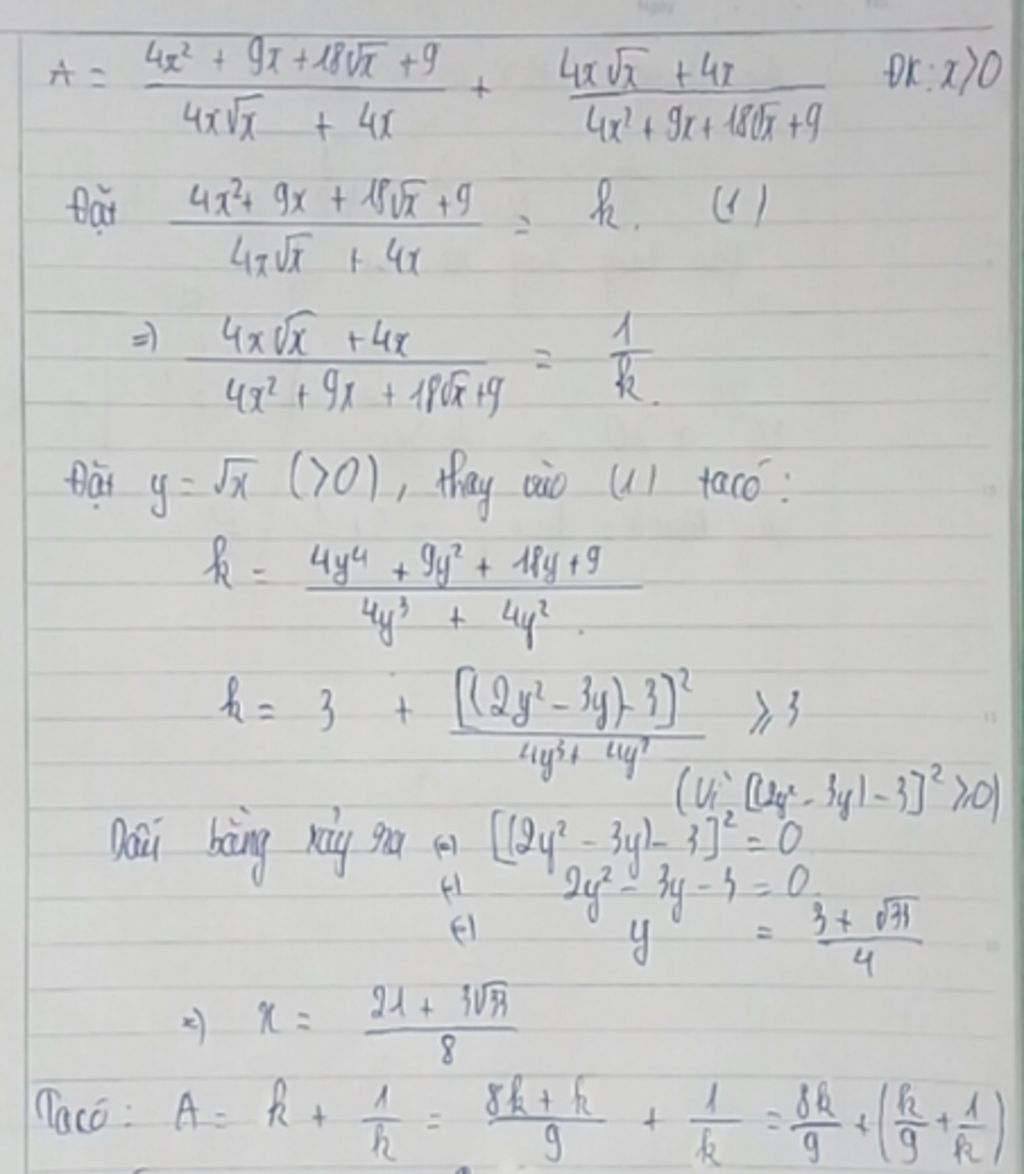 A = (4x² + 9x + 18√x + 9)/(4x√x + 4x) + (4x√x + 4x)/(4x² + 9x + 18√x + 9) ĐK: x>0
Đặt (4x² + 9x + 18√x + 9)/(4x√x + 4x) = k. (1)
=) (4x√x + 4x)/(4x² + 9x + 18√x + 9) = 1/k.
Đặt y = √x (>0), thay vào (1) ta có:
k = (4y⁴ + 9y² + 18y + 9)/(4y³ + 4y²).
k = 3 + [(2y² - 3y) - 3]²/(4y³ + 4y²) ≥ 3
(Vì [(2y² - 3y) - 3]² ≥ 0)
Dấu bằng xảy ra (=) [(2y² - 3y) - 3]² = 0
(=) 2y² - 3y - 3 = 0.
(=) y = (3 + √33)/4
=) x = (21 + 3√33)/8
Ta có: A = k + 1/k = (8k + k)/9 + 1/k = 8k/9 + (k/9 + 1/k)